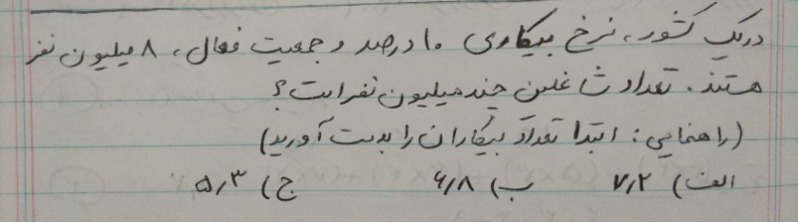 دریک کشور، نرخ بیکاری ۱۰ درصد و جمعیت فعال، ۸ میلیون نفر
هستند. تعداد شاغلین چند میلیون نفر است؟
(راهنمایی: ابتدا تعداد بیکاران را بدست آورید)
الف) ۷٫۲ ب) ۶٫۸ ج) ۵٫۳